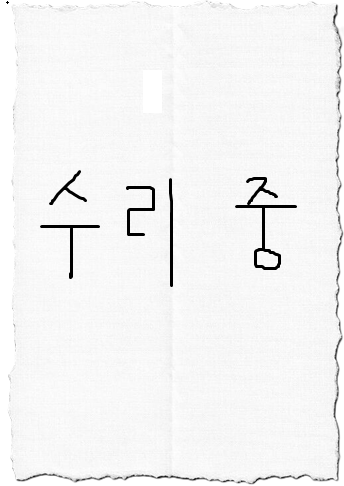 수리 중